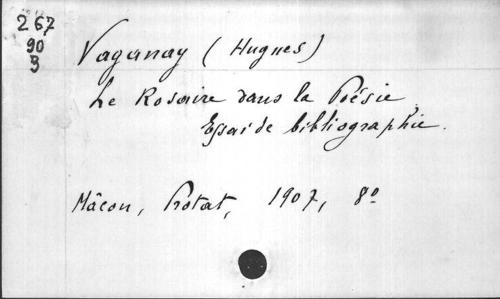 267
90
3
Vaganay (Hugues)
Le Rosaire dans la Poésie,
Essai de bibliographie.
Mâcon, Protat, 1907, 8º